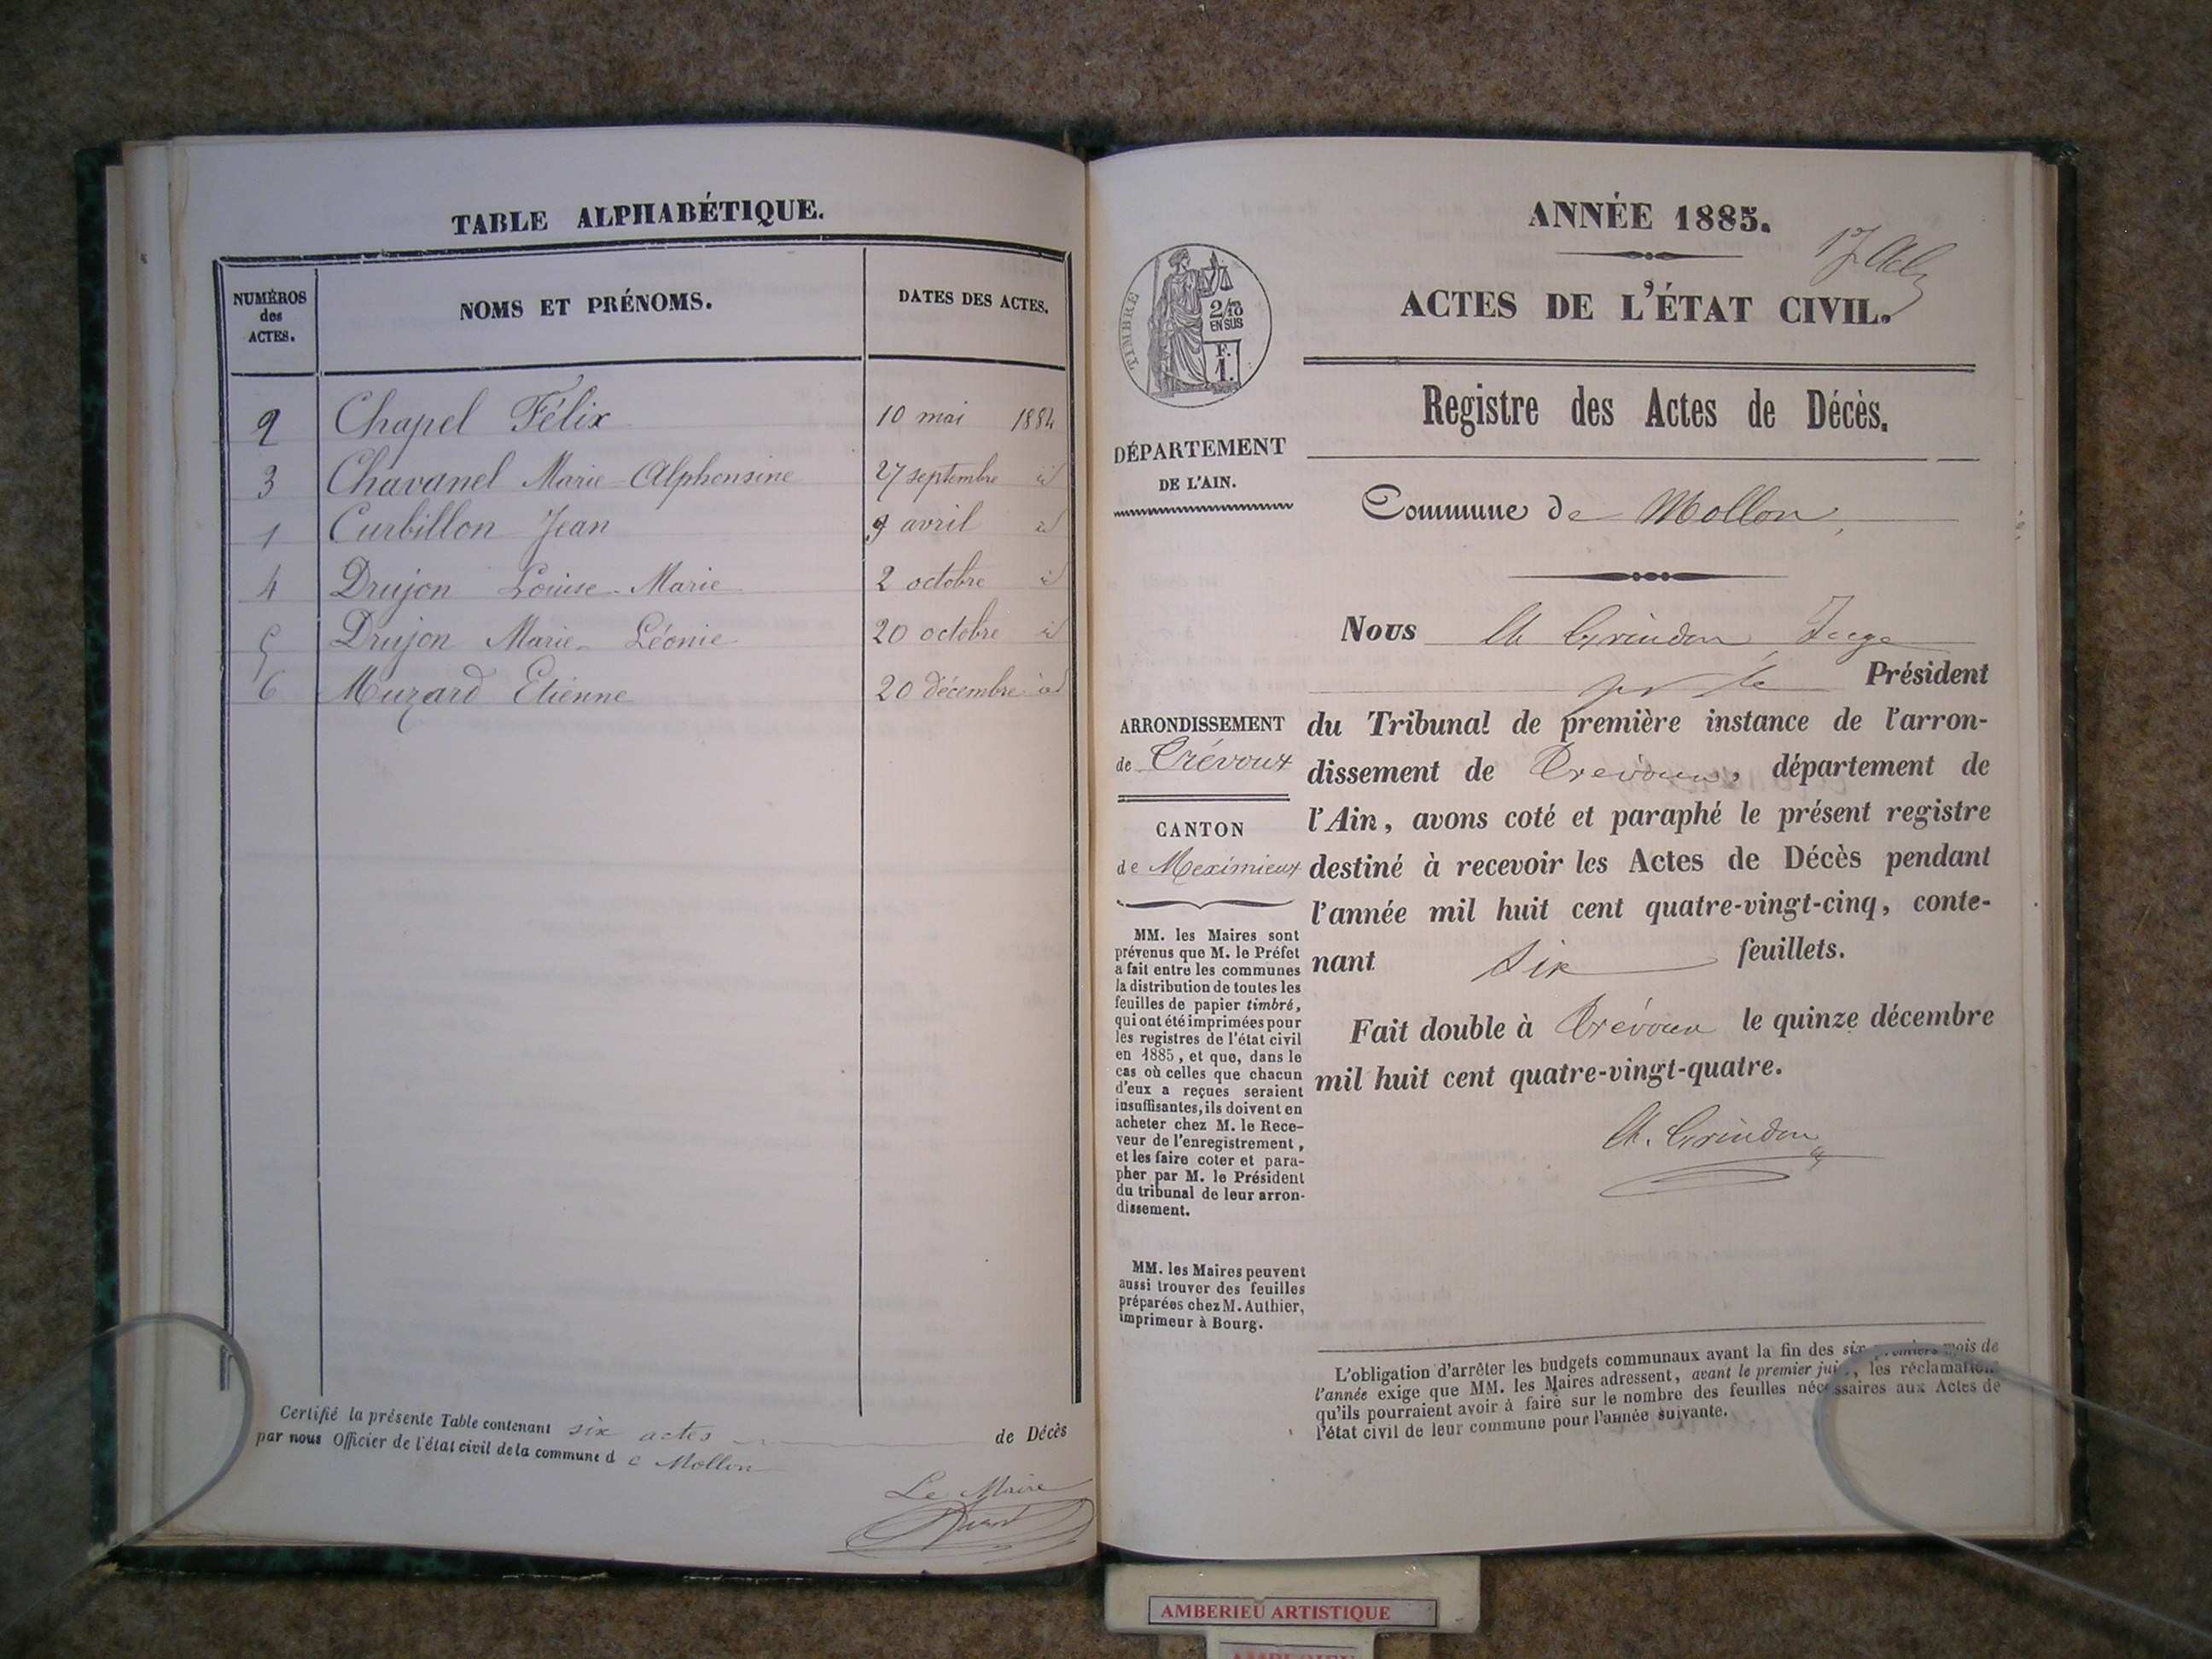 TABLE ALPHABÉTIQUE.
NUMÉROS
des
ACTES.
NOMS ET PRÉNOMS.
DATES DES ACTES.
2 Chapel Félix 10 mai 1884
3 Chavanel Marie Alphonsine 27 septembre id
1 Curbillon Jean 9 avril id
4 Drujon Louise-Marie 2 octobre id
5 Drujon Marie-Léonie 20 octobre id
6 Muzard Etienne 20 décembre id
Certifié la présente Table contenant six actes de Décès
par nous Officier de l'état civil de la commune de Mollon
Le Maire
ANNÉE 1885.
ACTES DE L'ÉTAT CIVIL.
Registre des Actes de Décès.
Commune de Mollon
TIMBRE
2/10
EN SUS
F.
1.
DÉPARTEMENT
DE L'AIN.
ARRONDISSEMENT
de Trévoux
CANTON
de Meximieux
MM. les Maires sont
prévenus que M. le Préfet
a fait entre les communes
la distribution de toutes les
feuilles de papier timbré,
qui ont été imprimées pour
les registres de l'état civil
en 1885, et que, dans le
cas où celles que chacun
d'eux a reçues seraient
insuffisantes, ils doivent en
acheter chez M. le Rece-
veur de l'enregistrement,
et les faire coter et para-
pher par M. le Président
du tribunal de leur arron-
dissement.
MM. les Maires peuvent
aussi trouver des feuilles
préparées chez M. Authier,
imprimeur à Bourg.
Nous Ch Grindon, Juge
pr le Président
du Tribunal de première instance de l'arron-
dissement de Trévoux, département de
l'Ain, avons coté et paraphé le présent registre
destiné à recevoir les Actes de Décès pendant
l'année mil huit cent quatre-vingt-cinq, conte-
nant six feuillets.
Fait double à Trévoux le quinze décembre
mil huit cent quatre-vingt-quatre.
Ch. Grindon
L'obligation d'arrêter les budgets communaux avant la fin des six premiers mois de
l'année exige que MM. les Maires adressent, avant le premier juin, les réclamations
qu'ils pourraient avoir à faire sur le nombre des feuilles nécessaires aux Actes de
l'état civil de leur commune pour l'année suivante.
AMBERIEU ARTISTIQUE
AMBERIEU